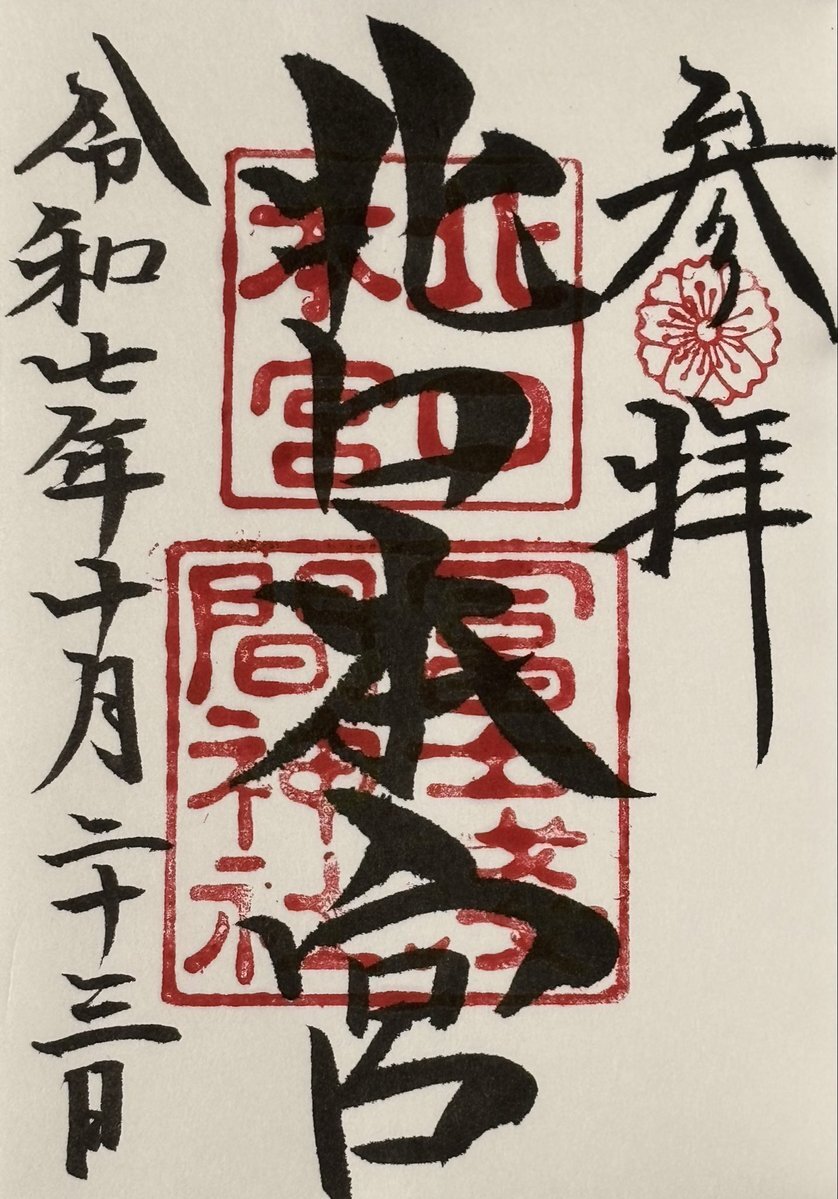 参拝
北口本宮
北口
本宮
冨士浅
間神社
令和七年十月二十三日